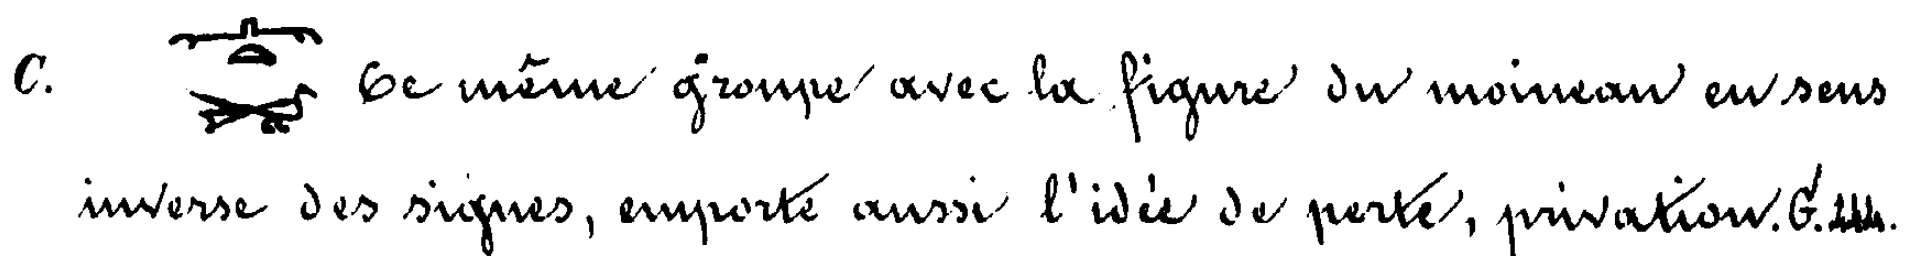 C. Ce même groupe avec la figure du moineau en sens
inverse des signes, emporte aussi l'idée de perte, privation. G. 444.